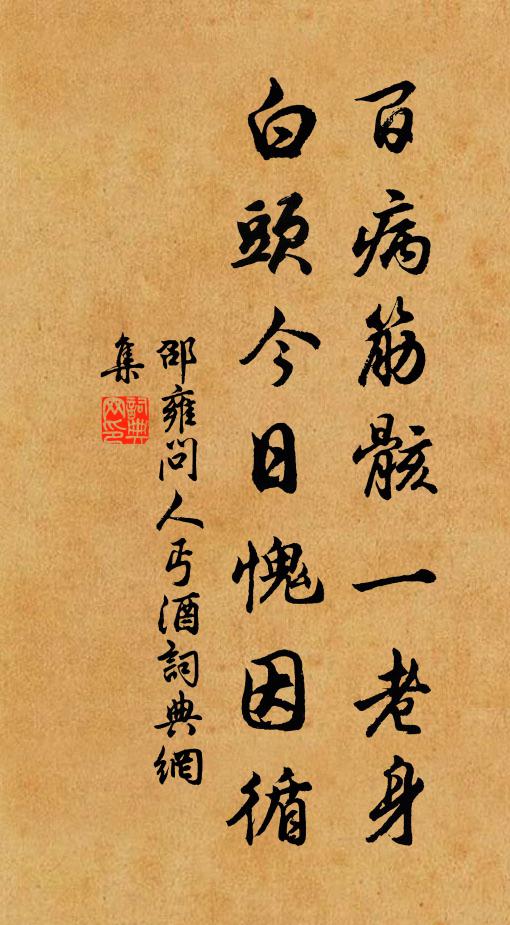 百病筋骸一老身
白頭今日愧因循
邵雍問人丐酒詞典網
集
詞典網印